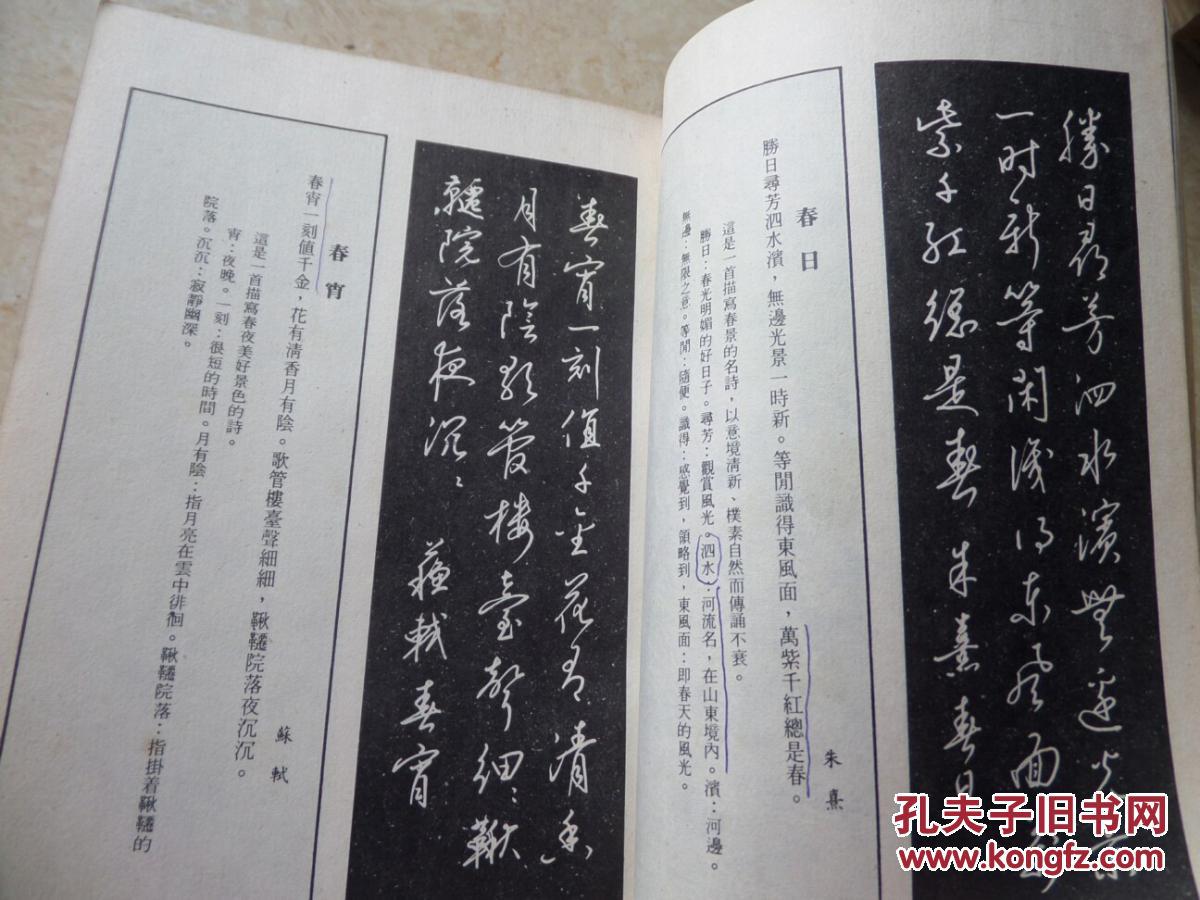 勝日尋芳泗水濱無邊光景
一時新等閑識得東風面萬
紫千紅總是春 朱熹春日
春日
朱熹
勝日尋芳泗水濱，無邊光景一時新。等閒識得東風面，萬紫千紅總是春。
這是一首描寫春景的名詩，以意境清新、樸素自然而傳誦不衰。
勝日：春光明媚的好日子。尋芳：觀賞風光。泗水：河流名，在山東境內。濱：河邊。
無邊：無限之意。等閒：隨便。識得：感覺到，領略到，東風面：即春天的風光。
春宵一刻值千金花有清香
月有陰歌管樓臺聲細〻鞦
韆院落夜沉〻 蘇軾春宵
春宵
蘇軾
春宵一刻值千金，花有清香月有陰。歌管樓臺聲細細，鞦韆院落夜沉沉。
這是一首描寫春夜美好景色的詩。
宵：夜晚。一刻：很短的時間。月有陰：指月亮在雲中徘徊。鞦韆院落：指掛着鞦韆的
院落。沉沉：寂靜幽深。
孔夫子旧书网
www.kongfz.com